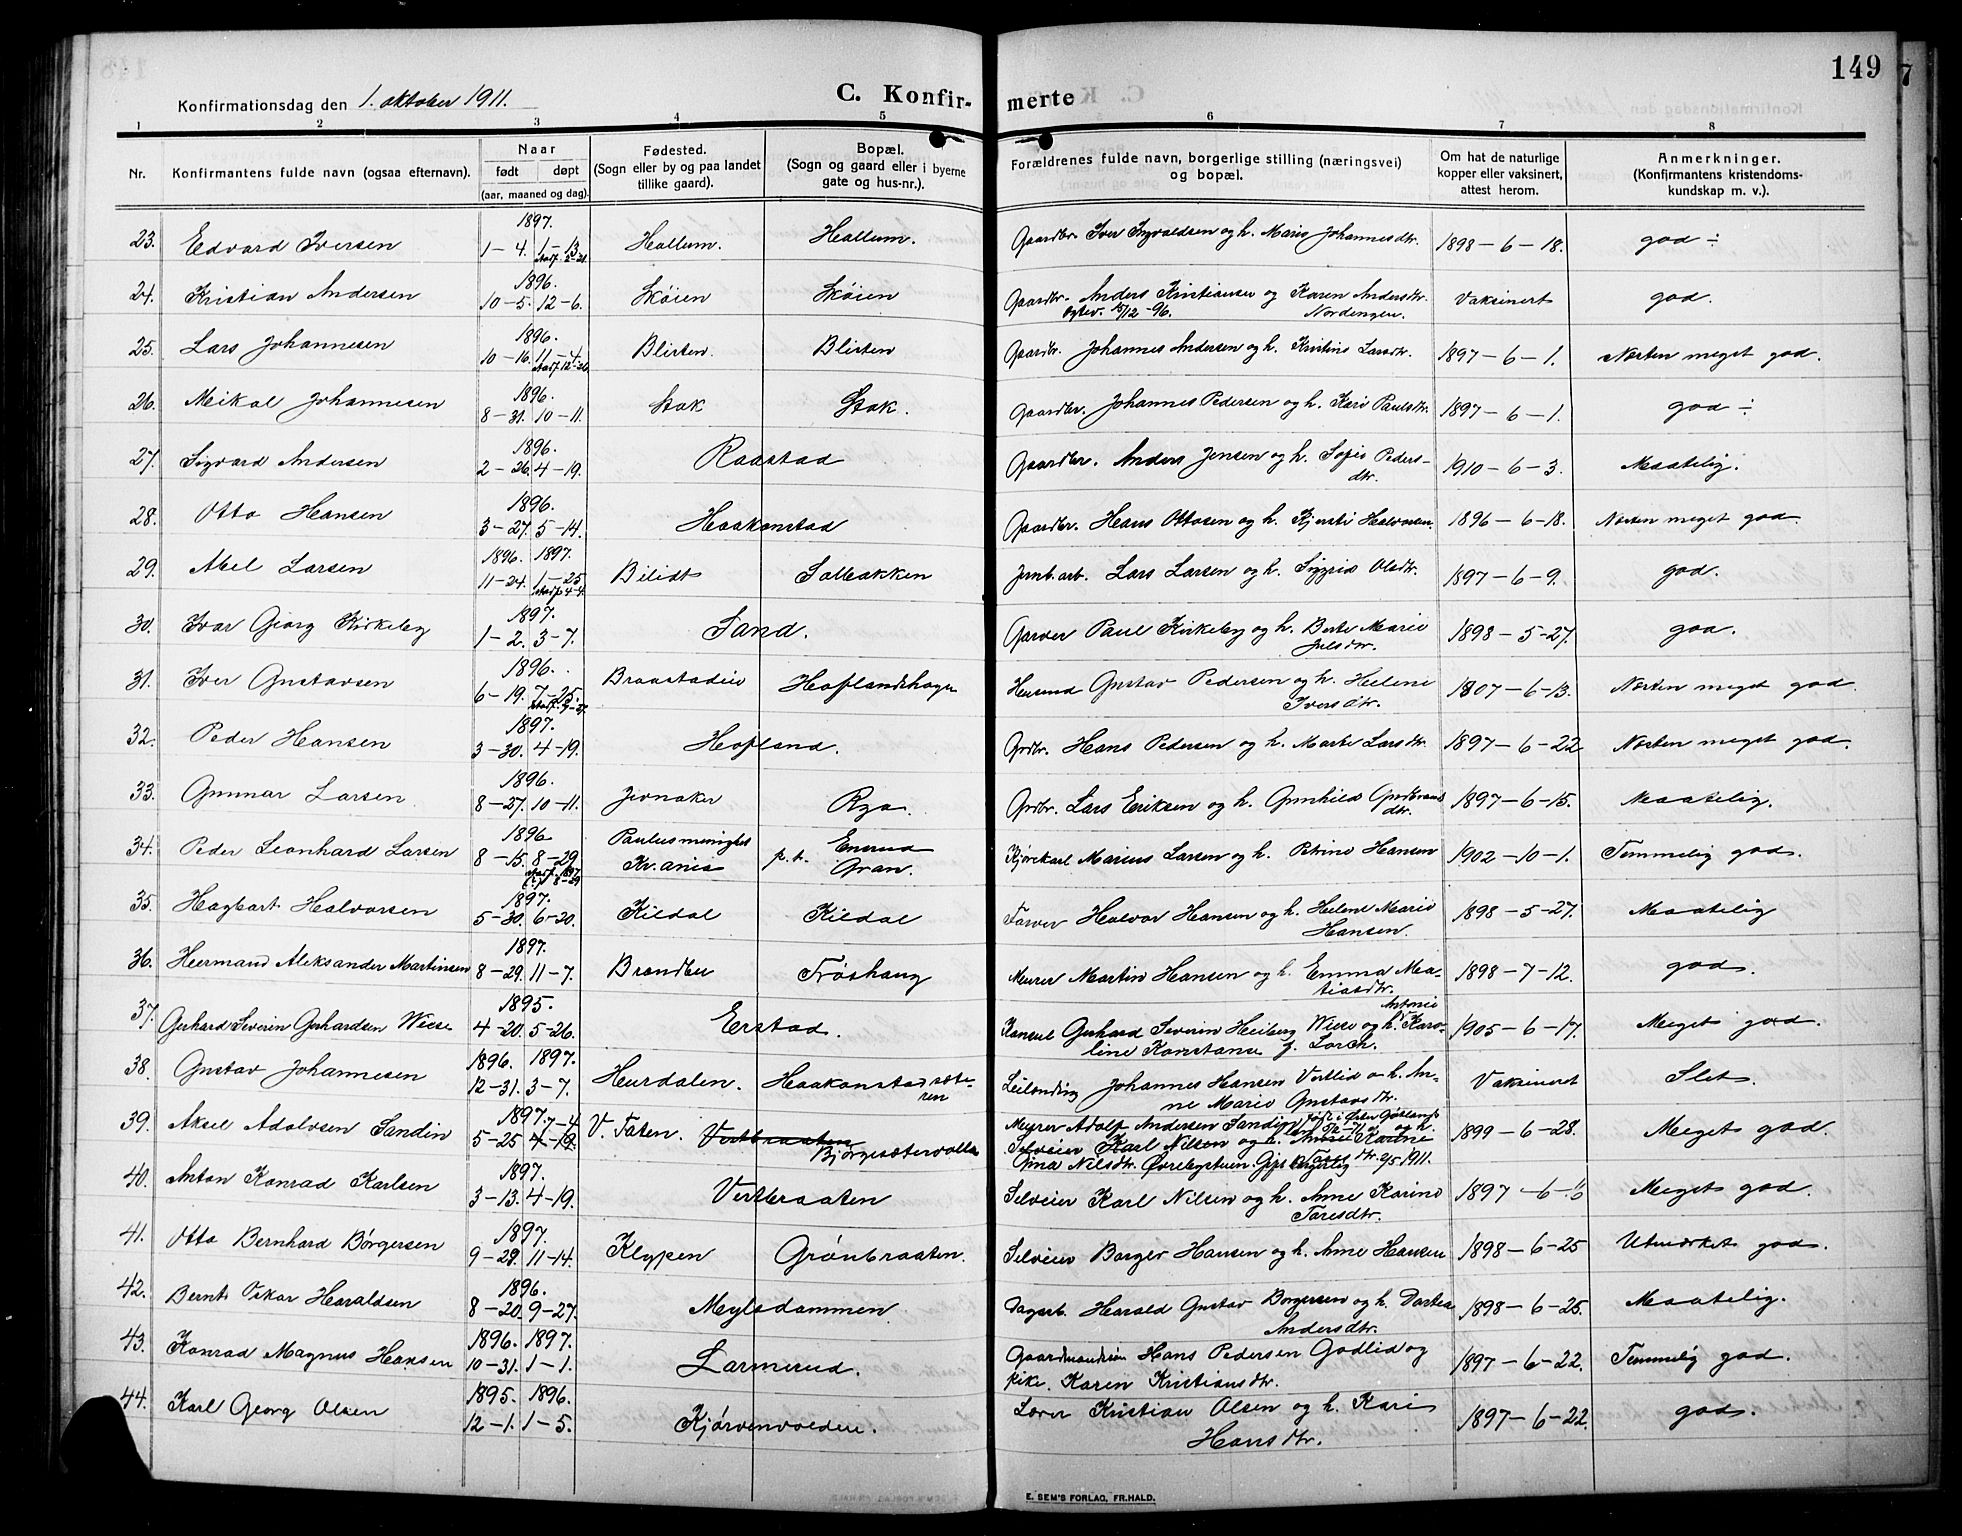 149
Konfirmationsdag den 1. oktober 1911.
C. Konfir- merte
1 2 3 4 5 6 7 8
Nr. Konfirmantens fulde navn (ogsaa efternavn). Naar født døpt (aar, maaned og dag). Fødested. (Sogn eller by og paa landet tillike gaard). Bopæl. (Sogn og gaard eller i byerne gate og hus-nr.). Forældrenes fulde navn, borgerlige stilling (næringsvei) og bopæl. Om hat de naturlige kopper eller vaksinert, attest herom. Anmerkninger. (Konfirmantens kristendoms-kundskap m. v.).
1897.
23. Edvard Iversen 1-4. 1-13 Hallum. Hallum. Gaardbr. Iver Ingvaldsen og h. Marie Johannesdtr. 1898-6-18. god ÷
1896.
24. Kristian Andersen 10-5. 12-6. Skøien Skøien Gaardbr. Anders Kristiansen og Karen Andersdtr. Vaksinert god.
Nordengen.
1896.
25. Lars Johannesen 10-16. 11-4 Blisten. Blisten Gaardbr. Johannes Andersen og h. Kristine Larsdtr. 1897-6-1. Næsten meget god.
1896.
26. Mikal Johannesen 8-31. 10-11. Stok Stok. Gaardbr. Johannes Pedersen og h. Kari Paulsdtr. 1897-6-1. god ÷
1896.
27. Sigvard Andersen 2-26. 4-19. Raastad Gaardbr. Anders Jensen og h. Sofie Peders-
dtr. 1910-6-3. Maatelig.
1896.
28. Otto Hansen 3-27. 5-14. Haakonstad Gaardbr. Hans Ottosen og h. Kjersti Halvorsen. 1896-6-18. Næsten meget god.
1896. 1897.
29. Abel Larsen 11-24. 1-25 Bilidt Solbakken Jernb. arb. Lars Larsen og h. Sigrid Olsdtr. 1897-6-9. god.
1897.
30. Ivar Georg Kirkeby 1-2. 3-7. Sand. Garver Paul Kirkeby og h. Berte Marie 1898-5-27. god.
Julsdtr.
1896.
31. Iver Gustavsen 6-19. 7-25. Braastadeie Hoflandshagen Husmd Gustav Pedersen og h. Helene 1807-6-13. Næsten meget god.
Iversdtr.
1897.
32. Peder Hansen 3-30. 4-19. Hofland. Grdbr. Hans Pedersen og h. Marte Larsdtr. 1897-6-22 Næsten meget god.
1896.
33. Gunnar Larsen 8-27. 10-11. Jevnaker Rya. Grdbr. Lars Eriksen og h. Gunhild Gudbrands
dtr. 1897-6-15. Maatelig.
1896
34. Peder Leonhard Larsen 8-15. 8-29 Paulus menighet Kr.ania p.t. Enerud Gran. Kjørekarl Marius Larsen og h. Petrine Hansen 1902-10-1. Temmelig god.
1897.
35. Hagbart Halvorsen 5-30. 6-20. Kildal Kildal Farver Halvor Hansen og h. Helene Marie 1898-5-27. Maatelig
Hansen.
1897.
36. Hermand Aleksander Martinsen 8-29. 11-7. Brandbu Trøshaug Murer Martin Hansen og h. Emma Ma- 1898-7-12. god.
tiasdtr.
1895.
37. Gerhard Severin Gerhardsen Wiese 4-20. 5-26. Erstad. Konsul Gerhard Severin Heiberg Wiese og h. Antonie Karo- 1905-6-17. Meget god.
line Konstanse f. Lorch.
1896. 1897.
38. Gustav Johannesen 12-31. 3-7. Hurdalen. Haakonstadsæte-
ren Leilænding Johannes Hansen Vestlid o h. An- Vaksineret Slet.
ne Marie Gustavsdtr.
1897. 7-4
39. Aksel Adolvsen Sandin 5-25 4-19. V. Toten. Vestbraaten Bjørgesætervolla Meirer Adolf Andersen Sandin 1899-6-28. Meget god.
Selveier Karl Nilsen og h. Anne Karine
Gina Nilsdtr. Øvrebystuen. Toresdtr. 2/5 1911.
1897.
40. Anton Konrad Karlsen 3-13. 4-19. Vestbraaten Selveier Karl Nilsen og h. Anne Karine 1897-6- Meget god.
Toresdtr.
1897.
41. Otto Bernhard Børgersen 9-29. 11-14. Klypen Grønbraaten. Selveier Borger Hansen og h. Anne Hansen 1898-6-25 Utmerket god.
1896.
42. Bernt Oskar Haraldsen 8-20. 9-27. Meylsdammen. Dagarb. Harald Gustav Borgersen og h. Dortea 1898-6-25. Maatelig.
Andersdtr.
1896. 1897.
43. Konrad Magnus Hansen 10-31. 1-1. Larmerud. Gaardmandssøn Hans Pedersen Godlid og 1897-6-22. Temmelig god.
pike. Karen Kristiansdtr.
1895. 1896.
44. Karl Georg Olsen 12-1. 1-5. Kjørvenvolden. Lærer Kristian Olsen og h. Kari 1897-6-22. god.
Hansdtr.
E. SEM'S FORLAG, FR.HALD.